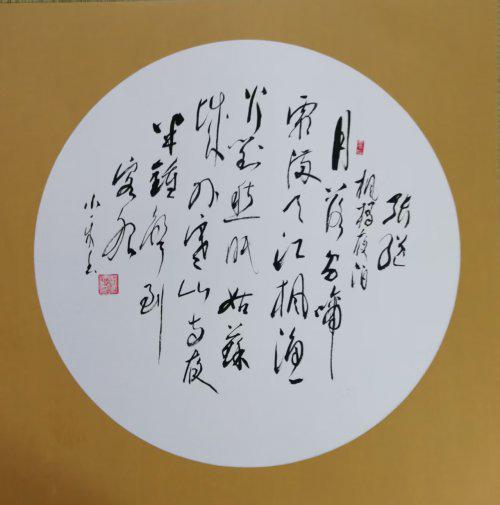 張繼
楓橋夜泊
月落烏啼
霜滿天江楓漁
火對愁眠姑蘇
城外寒山寺夜
半鐘聲到
客船